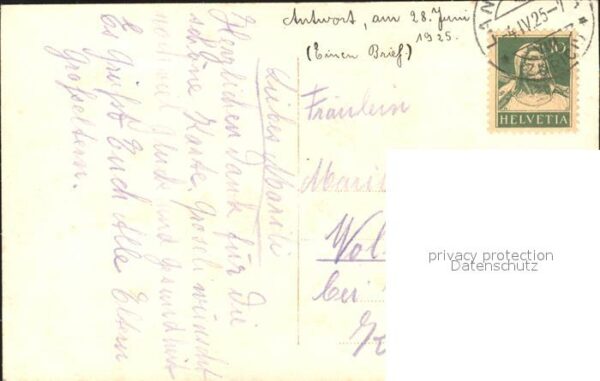 Antwort, am 28. Juni
1925.
(Einen Brief)
4.IV.25-1
HELVETIA
Liebes Mareili
Herzlichen Dank für die
schöne Karte, Grosseli wünscht
nochmal Glück und Gesundheit
Es grüsst Euch Alle Eltern
Grosseltern.
Fräulein
bei
privacy protection
Datenschutz